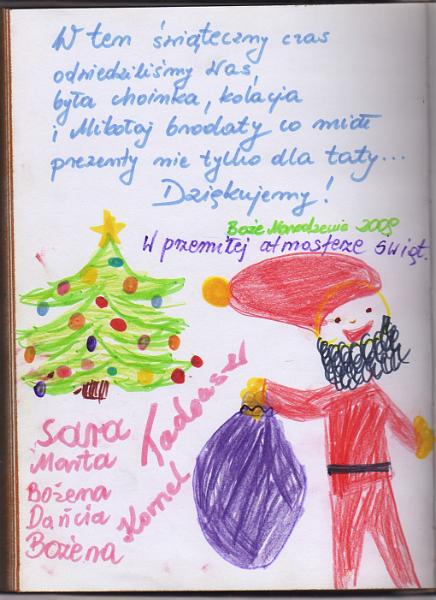 W ten świąteczny czas
odwiedziliśmy Was,
była choinka, kolacja
i Mikołaj brodaty co miał
prezenty nie tylko dla taty...
Dziękujemy!
Boże Narodzenie 2008
W przemiłej atmosferze świąt.
Sara
Marta
Bożena
Dańcia
Bożena
Kornel
Tadeusz